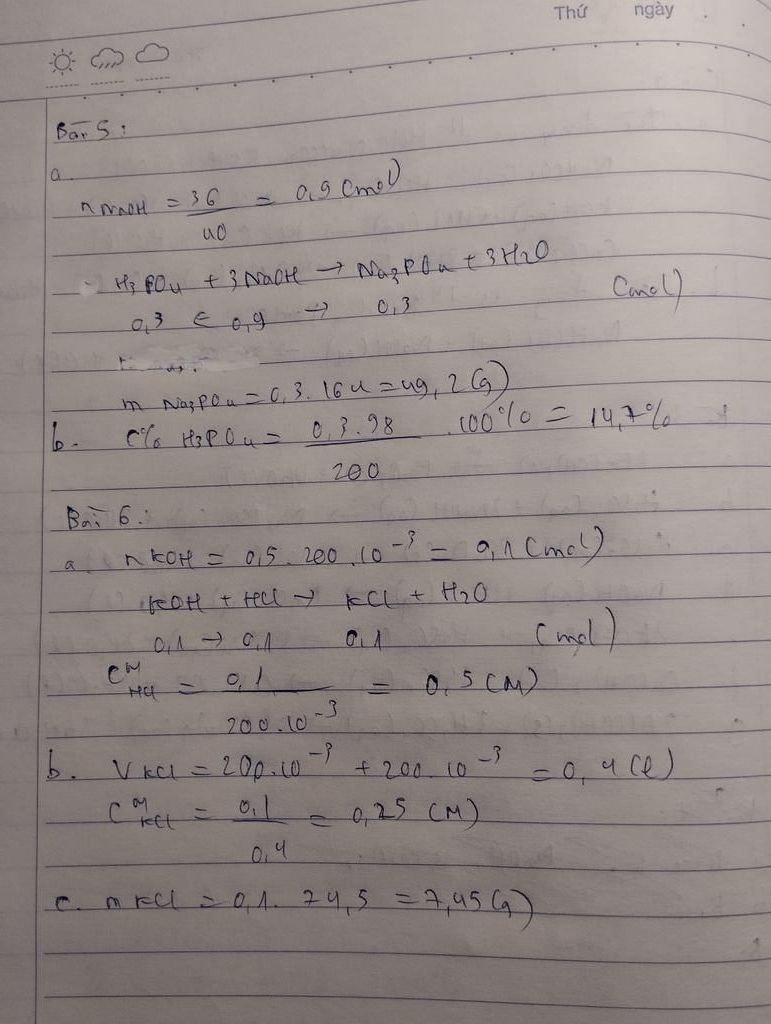 Thứ ngày
Bài 5:
a.
n NaOH = 36/40 = 0,9 (mol)
H3PO4 + 3NaOH → Na3PO4 + 3H2O
0,3 ← 0,9 → 0,3 (mol)
m Na3PO4 = 0,3.164 = 49,2 (g)
b. C% H3PO4 = 0,3.98/200 .100% = 14,7%
Bài 6:
a. n KOH = 0,5.200.10⁻³ = 0,1 (mol)
KOH + HCl → KCl + H2O
0,1 → 0,1 0,1 (mol)
CM HCl = 0,1/200.10⁻³ = 0,5 (M)
b. V KCl = 200.10⁻³ + 200.10⁻³ = 0,4 (l)
CM KCl = 0,1/0,4 = 0,25 (M)
c. m KCl = 0,1.74,5 = 7,45 (g)